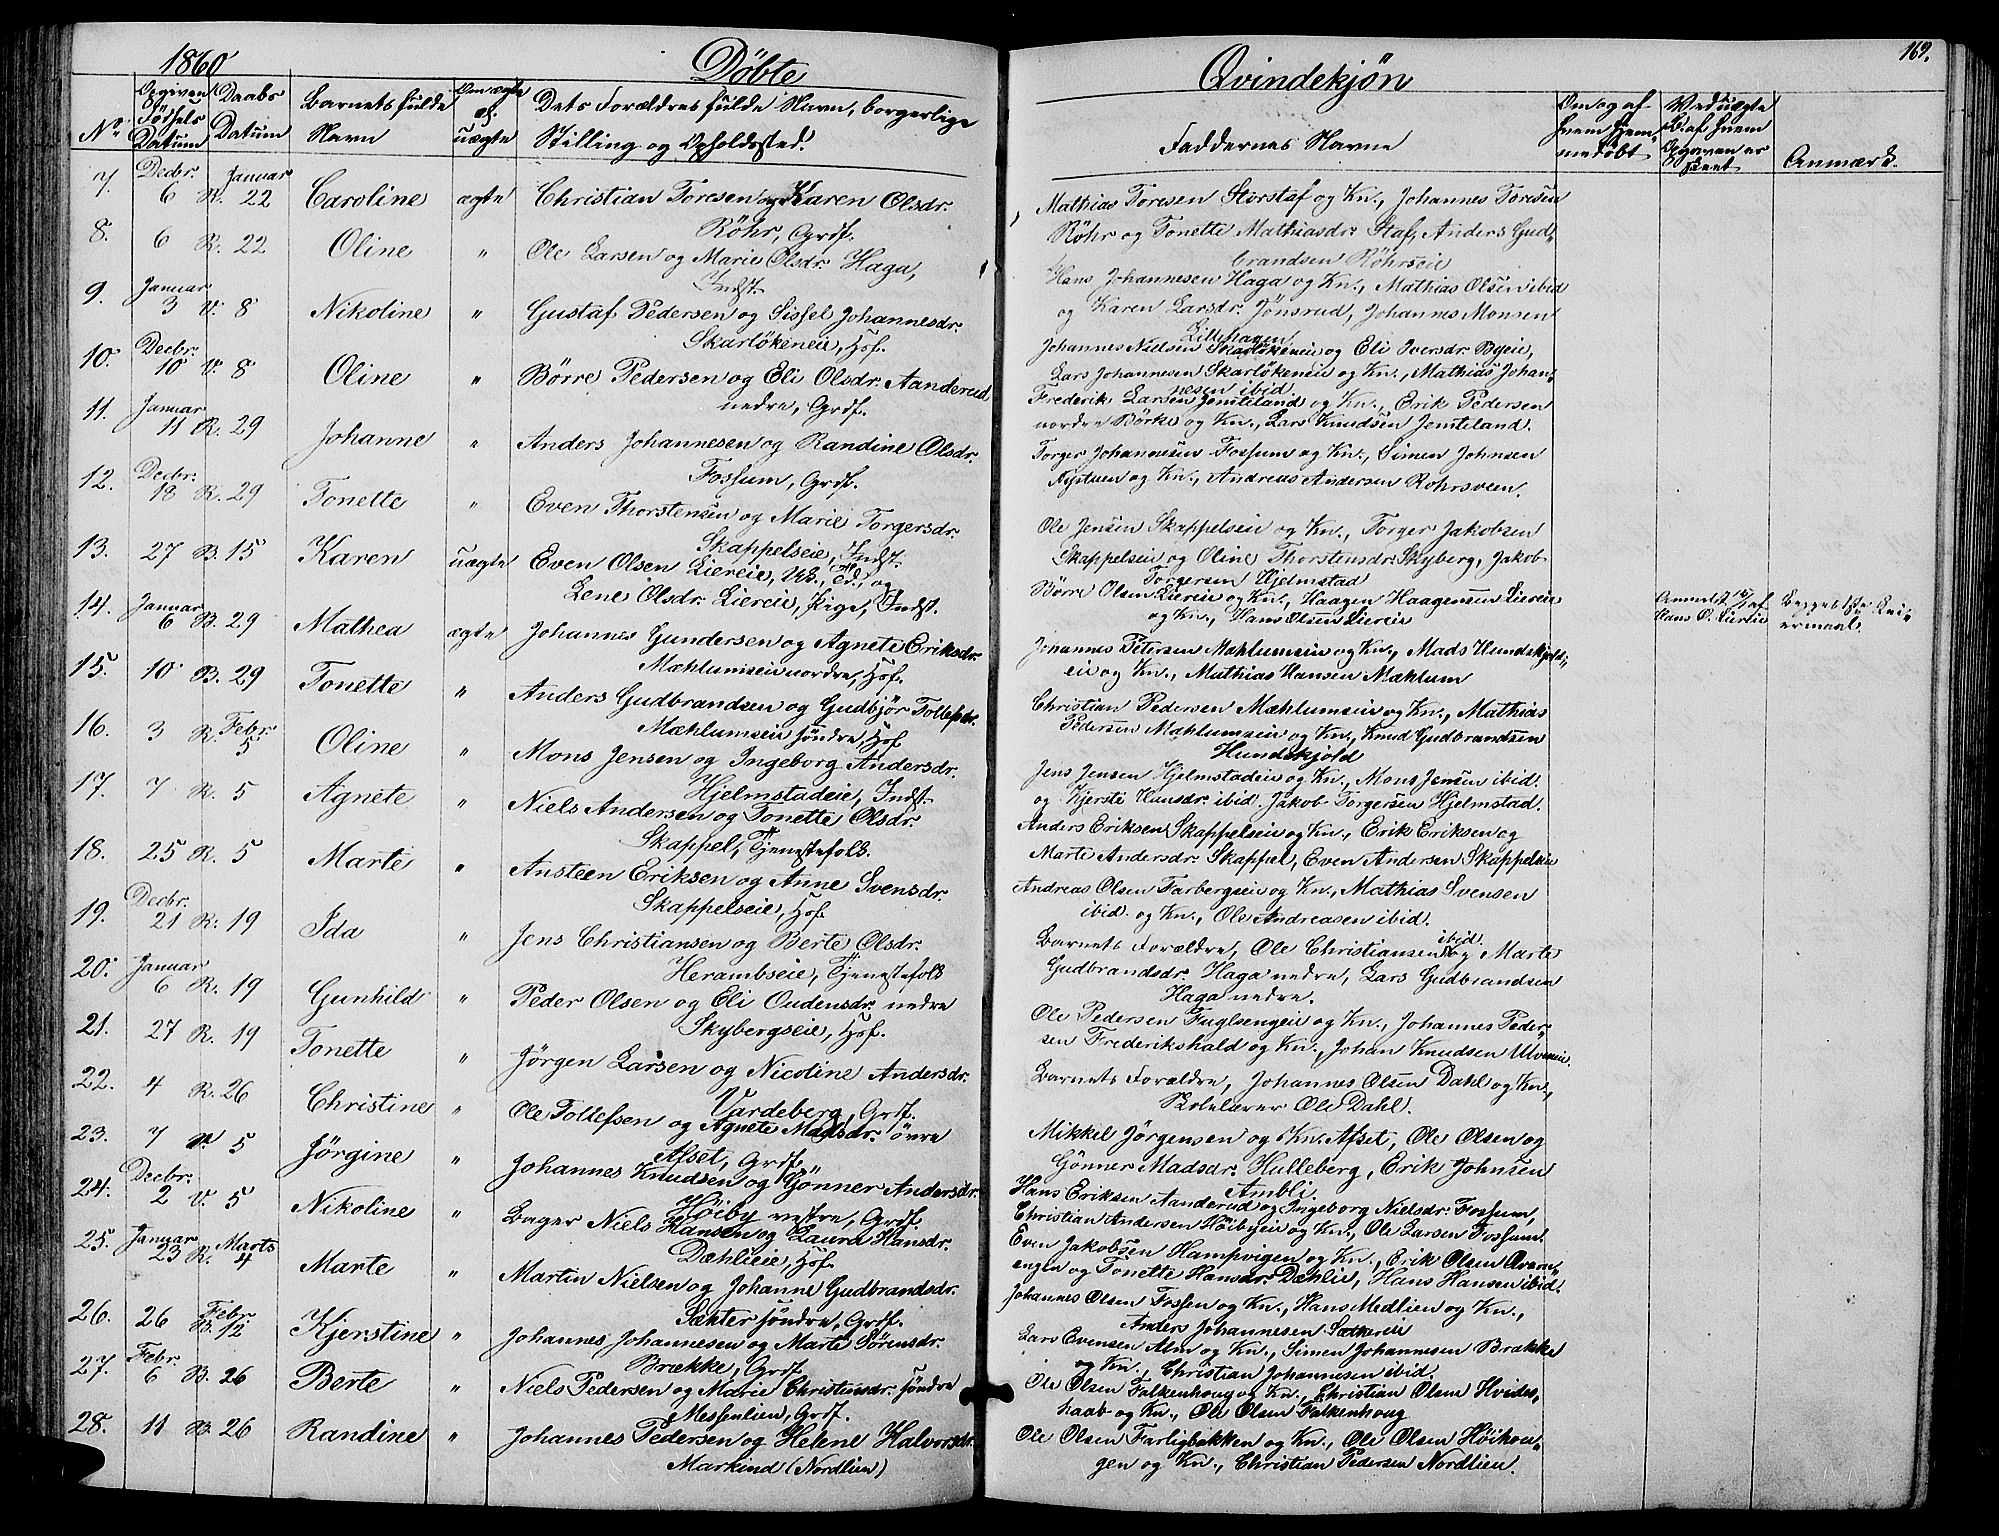 1860
Döbte
Qvindekjön
169.
No
Opgiven Födsels Datum
Daabs Datum
Barnets fulde Navn
Om ægte el. uægte
Dets Forældres fulde Navn, borgerlige Stilling og Opholdssted.
Faddernes Navne
Om og af hvem hjemmedöbt
Ved uægte B. af hvem Opgaven er skeet
Anmærk.
7. Decbr. 6 R. Januar 22 Caroline ægte Christian Toresen og Karen Olsdr.
Röhr, Grdf.
Mathias Toresen Storstaf og Kn., Johannes Toresen
Röhr og Tonette Mathiasdr. Staf, Anders Gud-
brandsen Röhrseie
8. 6 R. 22 Oline " Ole Larsen og Marie Olsdr. Haga,
Indst.
Hans Johannesen Haga og Kn., Mathias Olsen ibid
og Karen Larsdr. Jönsrud, Johannes Monsen
Lillehagen
9. Januar 3 V. 8 Nikoline " Gustaf Pedersen og Sissel Johannesdr.
Skarlökeneie, Hsf.
Johannes Nielsen Skarlökeneie og Eli Iversdr. Byeie,
Lars Johannesen Skarlökeneie og Kn., Mathias Johan-
nesen ibid
10. Decbr. 10 V. 8 Oline " Börre Pedersen og Eli Olsdr. Aanderud
nedre, Grdf.
Frederik Larsen Jemtland og Kn., Erik Pedersen
nordre Börke og Kn., Lars Knudsen Jemteland.
11. Januar 11 R. 29 Johanne " Anders Johannesen og Randine Olsdr.
Fossum, Grdf.
Torger Johannesen Fossum og Kn., Simen Johnsen
Nystuen og Kn., Andreas Andersen Rohrsveen.
12. Decbr. 18 R. 29 Tonette " Even Thorstensen og Marie Torgersdr.
Skappelseie, Indst.
Ole Jensen Skappelseie og Kn., Torger Jakobsen
Skappelseie og Oline Thorstensdr. Skyberg, Jakob
Torgersen Hjelmstad
13. 27 B. 15 Karen uægte Even Olsen Liereie, Uk., Td., og
Lene Olsdr. Liereie, Pige, Indst.
Börre Olsen Liereie og Kn., Haagen Haagensen Liereie
og Kn., Hans Olsen Liereie
Anmeldt af
Hans O. Lierie
Begges 1ste Lei-
ermaal.
14. Januar 6 B. 29 Mathea ægte Johannes Gundersen og Agnete Eriksdr.
Mæhlumseie nordre, Hsf.
Johannes Petersen Mæhlumseie og Kn., Mads Hundskjold-
eie og Kn., Mathias Hansen Mæhlum
15. 10 B. 29 Tonette " Anders Gudbrandsen og Gudbjör Tollefsdr.
Mæhlumseie söndre Hsf
Christian Pedersen Mæhlumseie og Kn., Mathias
Pedersen Mæhlumseie og Kn., Knud Gudbrandsen
Hundskjold
16. 3 R. Febr. 5 Oline " Mons Jensen og Ingeborg Andersdr.
Hjelmstadeie, Indst.
Jens Jensen Hjelmstadeie og Kn., Mons Jensen ibid.
og Kjersti Hansdr. ibid. Jakob Torgersen Hjelmstad.
17. 7 R. 5 Agnete " Niels Andersen og Tonette Olsdr.
Skappel, Tjenestefolk.
Anders Eriksen Skappelseie og Kn., Erik Eriksen og
Marte Andersdr. Skappel, Even Andersen Skappelseie
18. 25 R. 5 Marte " Ansteen Eriksen og Anne Svensdr.
Skappelseie, Hsf.
Andreas Olsen Farbergseie og Kn., Mathias Svensen
ibid. og Kn., Ole Andreasen ibid.
19. Decbr. 21 R. 19 Ida " Jens Christiansen og Berte Olsdr.
Herambseie, Tjenestefolk
Barnets Forældre, Ole Christiansen ibid. og Marte
Gudbrandsdr. Haga nedre, Lars Gudbrandsen
Haga nedre.
20. Januar 6 R. 19 Gunhild " Peder Olsen og Eli Oudensdr. nedre
Skybergseie, Hsf.
Ole Pedersen Fuglsengeie og Kn., Johannes Peder-
sen Frederikshald og Kn., Johan Knudsen Ulveneie.
21. 27 R. 19 Tonette " Jörgen Larsen og Nicoline Andersdr.
Vardeberg, Grdf.
Barnets Forældre, Johannes Olsen Dahl og Kn.,
Skolelærer Ole Dahl.
22. 4 R. 26 Christine " Ole Tollefsen og Agnete Madsdr. övre
Afset, Grdf.
Mikkel Jörgensen og Kn. Afset, Ole Olsen og
Gönner Madsdr. Hulleberg, Erik Johnsen
Ambli.
23. 7 V. 5 Jörgine " Johannes Knudsen og Gönner Andersdr.
Höiby vestre, Grdf.
Hans Eriksen Aanderud og Ingeborg Nielsdr. Fossum,
Christian Andersen Höibyeie og Kn., Ole Larsen Fossum.
24. Decbr. 2 V. 5 Nikoline " Bager Niels Hansen og Laura Hansdr.
Dæhlieie, Hsf.
Even Jakobsen Hampvigen og Kn., Erik Olsen Qvern-
engen og Tonette Hansdr. Dæhlie, Hans Hansen ibid.
25. Januar 23 R. Marts 4 Marte " Martin Nielsen og Johanne Gudbrandsdr.
Sæhter söndre, Grdf.
Johannes Olsen Fossen og Kn., Hans Medlien og Kn.,
Anders Johannesen Sæhtereie
26. 26 Febr B. 12 Kjerstine " Johannes Johannesen og Marte Sörensdr.
Brække, Grdf.
Lars Evensen Alm og Kn., Simen Johannesen Brække
og Kn., Christian Johannesen ibid.
27. Febr. 6 B. 26 Berte " Niels Pedersen og Marie Christensdr. söndre
Messenlien, Grdf.
Ole Olsen Falkenhoug og Kn., Christian Olsen Hvides-
haab og Kn., Ole Olsen Falkenhoug
28. 11 B. 26 Randine " Johannes Pedersen og Helene Halvorsdr.
Markind (Nordlien)
Ole Olsen Farligbakken og Kn., Ole Olsen Höikou-
gen og Kn., Christian Pedersen Nordlien.